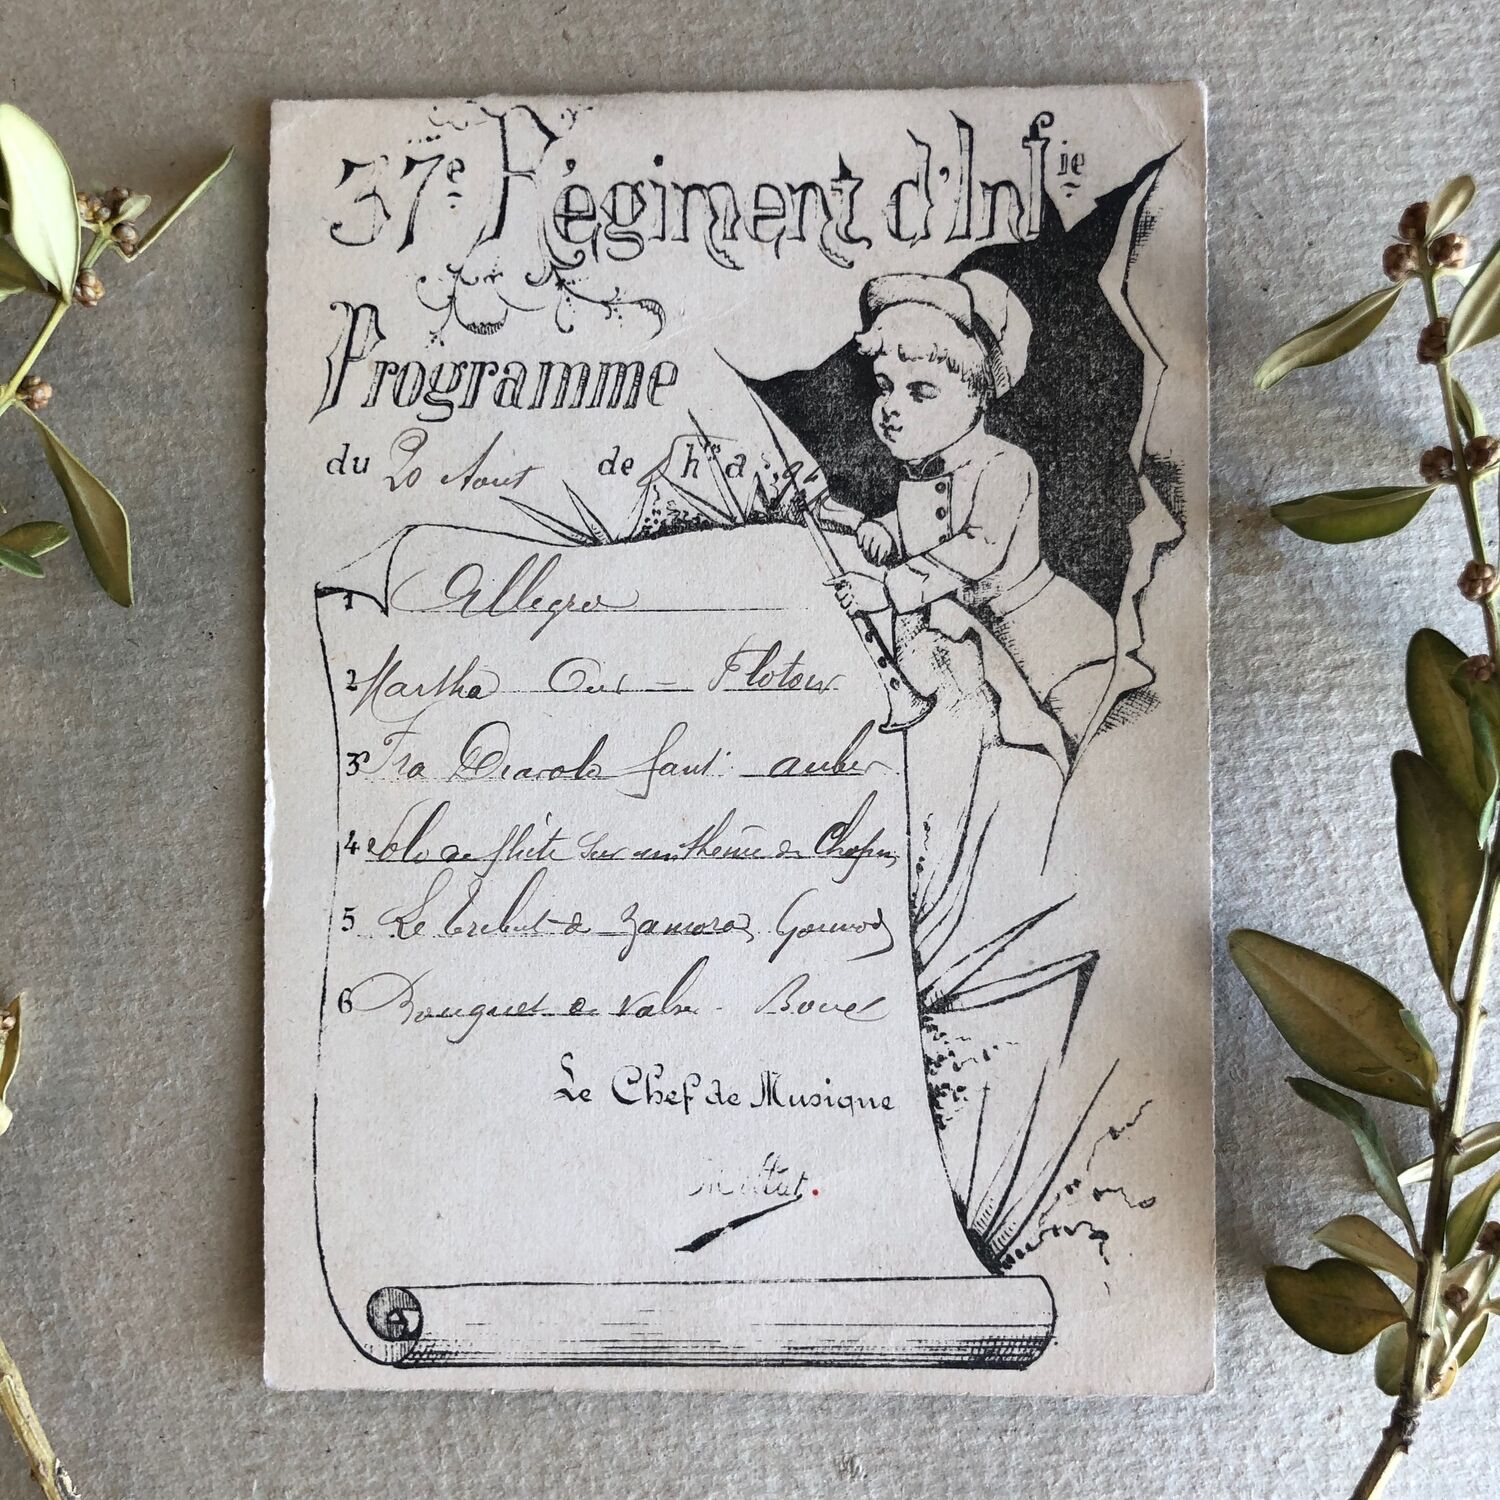 37e Régiment d'Infie
Programme
du 20 Aout de hres a
1 Allegro
2 Martha Ouv - Flotow
3 Fra Diavolo fant: auber
4 Solo de flûte sur un thème de Chopin
5 Le tribut de Zamora Gounod
6 Bouquet de Valse - Bouet
Le Chef de Musique